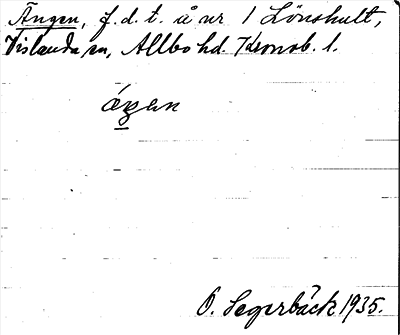 Ängen, f. d. t. å nr 1 Lönshult,
Vislanda sn, Allbo hd. Kronob. l.
ä́ŋen
O. Segerbäck 1935.